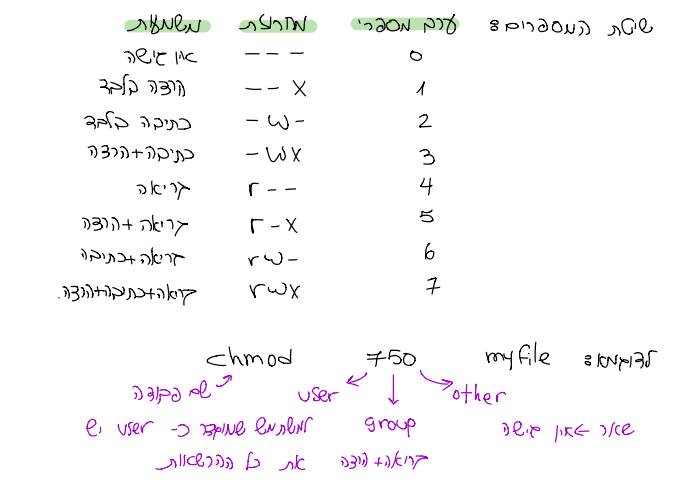 שיטת המספרים: ערך מספרי מחרוזת משמעות
0 --- אין גישה
1 --x הרצה בלבד
2 -w- כתיבה בלבד
3 -wx כתיבה+הרצה
4 r-- קריאה
5 r-x קריאה+הרצה
6 rw- קריאה+כתיבה
7 rwx קריאה+כתיבה+הרצה.
לדוגמא: chmod 750 myfile
שם הפקודה user other
למשתמש שמוגדר כ- user יש group שאר ← אין גישה
את כל ההרשאות קריאה+הרצה